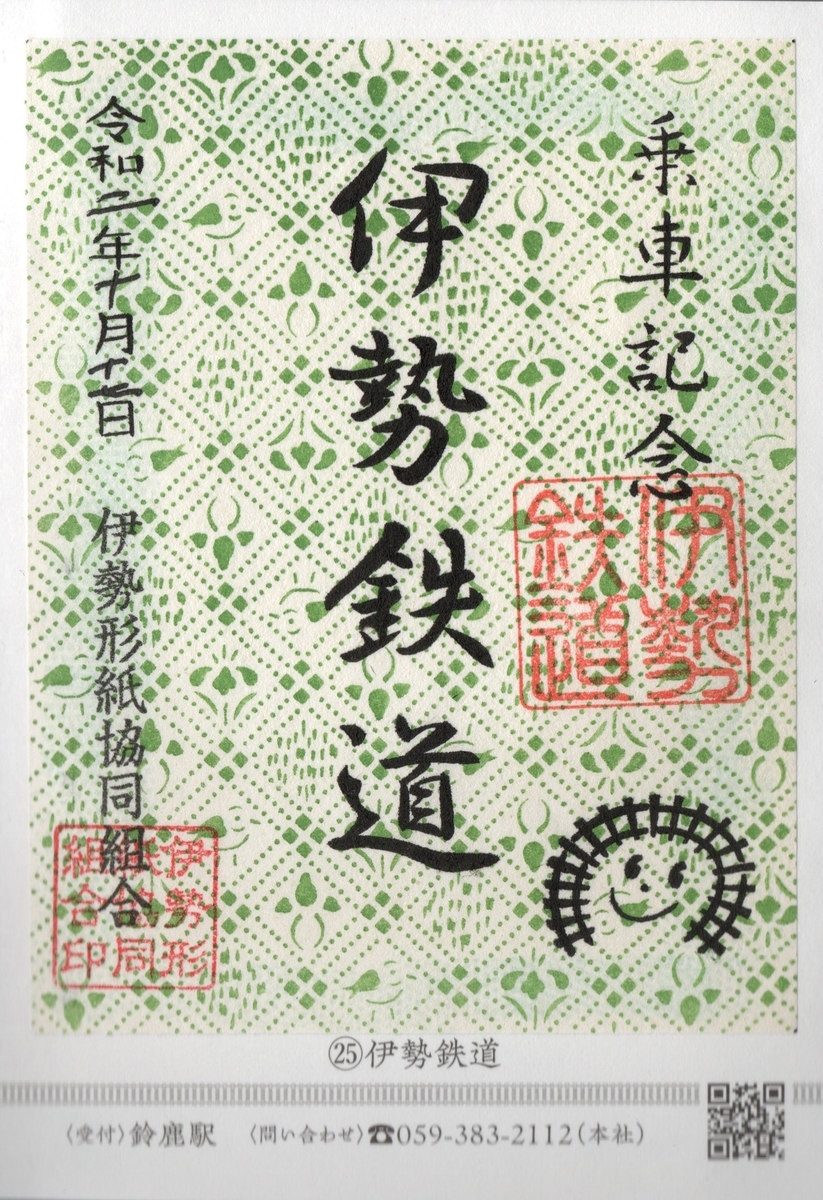 乗車記念
伊勢鉄道
伊勢鉄道
令和二年十月十七日
伊勢形紙協同組合
伊勢形紙協同組合印
㉕伊勢鉄道
〈受付〉鈴鹿駅 〈問い合わせ〉☎059-383-2112(本社)